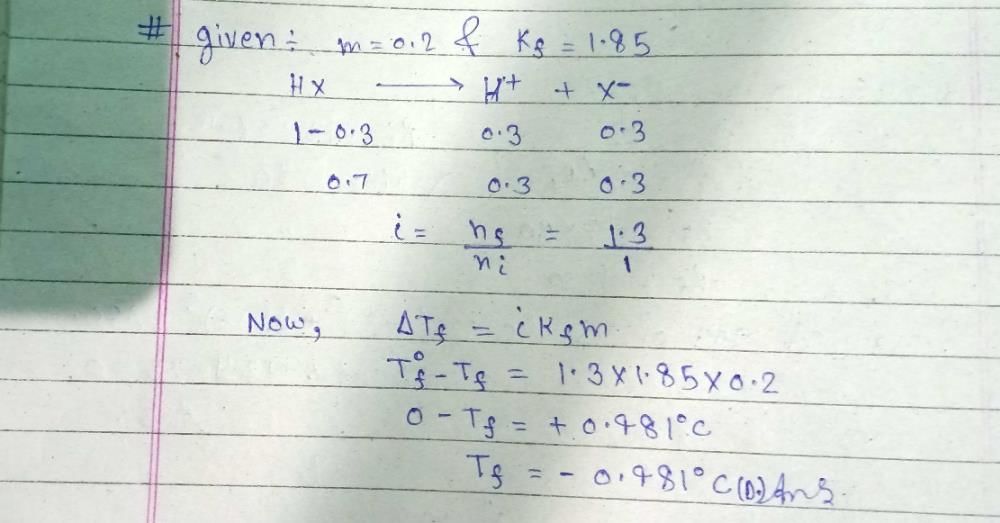 # given÷ m = 0.2 & Kf = 1.85
HX ⟶ H+ + X-
1-0.3 0.3 0.3
0.7 0.3 0.3
i = nf/ni = 1.3/1
Now, ΔTf = i Kf m
T°f - Tf = 1.3 X 1.85 X 0.2
0 - Tf = + 0.481°C
Tf = - 0.481°C (D.) Ans.